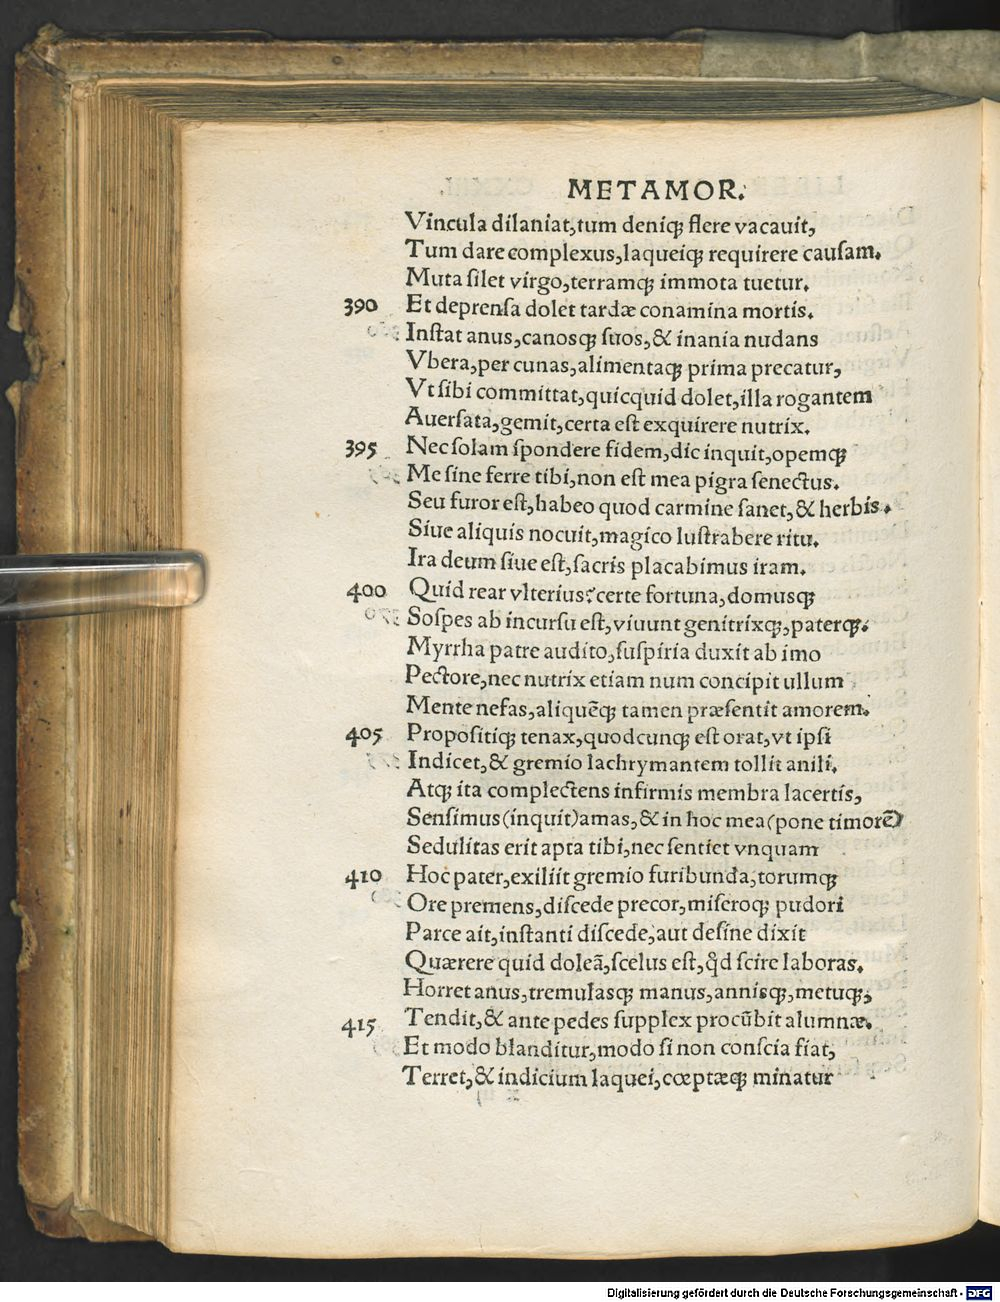 METAMOR.
Vincula dilaniat, tum deniqꝫ flere vacauit,
Tum dare complexus, laqueiqꝫ requirere causam.
Muta silet virgo, terramqꝫ immota tuetur.
390 Et deprensa dolet tardæ conamina mortis.
Instat anus, canosqꝫ suos, & inania nudans
Vbera, per cunas, alimentaqꝫ prima precatur,
Vt sibi committat, quicquid dolet, illa rogantem
Auersata, gemit, certa est exquirere nutrix.
395 Nec solam spondere fidem, dic inquit, opemqꝫ
Me sine ferre tibi, non est mea pigra senectus.
Seu furor est, habeo quod carmine sanet, & herbis.
Siue aliquis nocuit, magico lustrabere ritu.
Ira deum siue est, sacris placabimus iram.
400 Quid rear vlterius? certe fortuna, domusqꝫ
Sospes ab incursu est, viuunt genitrixqꝫ, paterqꝫ.
Myrrha patre audito, suspiria duxit ab imo
Pectore, nec nutrix etiam num concipit ullum
Mente nefas, aliquēqꝫ tamen præsentit amorem.
405 Propositiqꝫ tenax, quodcunqꝫ est orat, vt ipsi
Indicet, & gremio lachrymantem tollit anili.
Atqꝫ ita complectens infirmis membra lacertis,
Sensimus (inquit) amas, & in hoc mea (pone timorē)
Sedulitas erit apta tibi, nec sentiet vnquam
410 Hoc pater, exiliit gremio furibunda, torumqꝫ
Ore premens, discede precor, miseroqꝫ pudori
Parce ait, instanti discede, aut desine dixit
Quærere quid doleā, scelus est, qd̄ scire laboras.
Horret anus, tremulasqꝫ manus, annisqꝫ, metuqꝫ,
415 Tendit, & ante pedes supplex procūbit alumnæ.
Et modo blanditur, modo si non conscia fiat,
Terret, & indicium laquei, cœptæqꝫ minatur
Digitalisierung gefördert durch die Deutsche Forschungsgemeinschaft - DFG